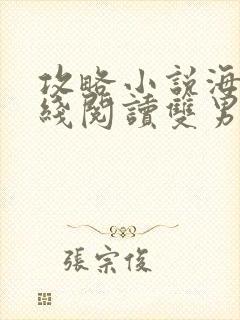 攻略小説海
綫閱讀雙男
張宗俊